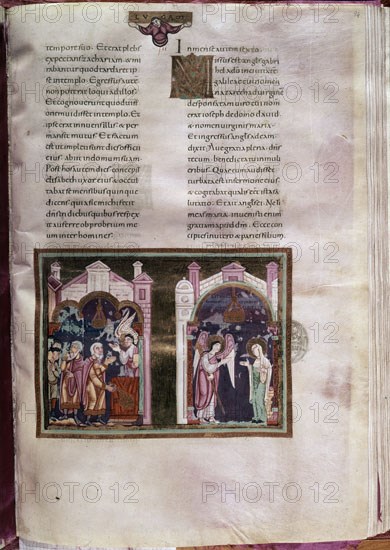 LV CAS
tempore suo. Et erat plebs
expectans zachariam & mi
rabantur quod tardaret ip
se in templo. Egressus autem
non poterat loqui ad illos.
Et cognouerunt quod uisi
onem uidisset in templo. Et
ipse erat innuens illis & per
mansit mutus. Et factum
est ut impleti sunt dies officii
eius abiit in domum suam.
Post hos autem dies concepit
elisabeth uxor eius & occul
tabat se mensibus quinque
dicens quia sic mihi fecit
dns in diebus quibus respex
it auferre obprobrium me
um inter homines.
In mense autem sexto.
Missus est angls gabri
hel a do in ciuitatem
galileae cui nomen
nazareth ad uirginem
desponsatam uiro cui nomen
ioseph de domo dauid
& nomen uirginis maria.
Et ingressus angls ad eam
dixit. Aue gratia plena dns
tecum benedicta tu in muli
eribus. Quae cum audisset
turbata est in sermone eius
& cogitabat qualis esset ista salu
tatio. Et ait angls ei. Ne ti
meas maria inuenisti enim
gratiam apud dm.